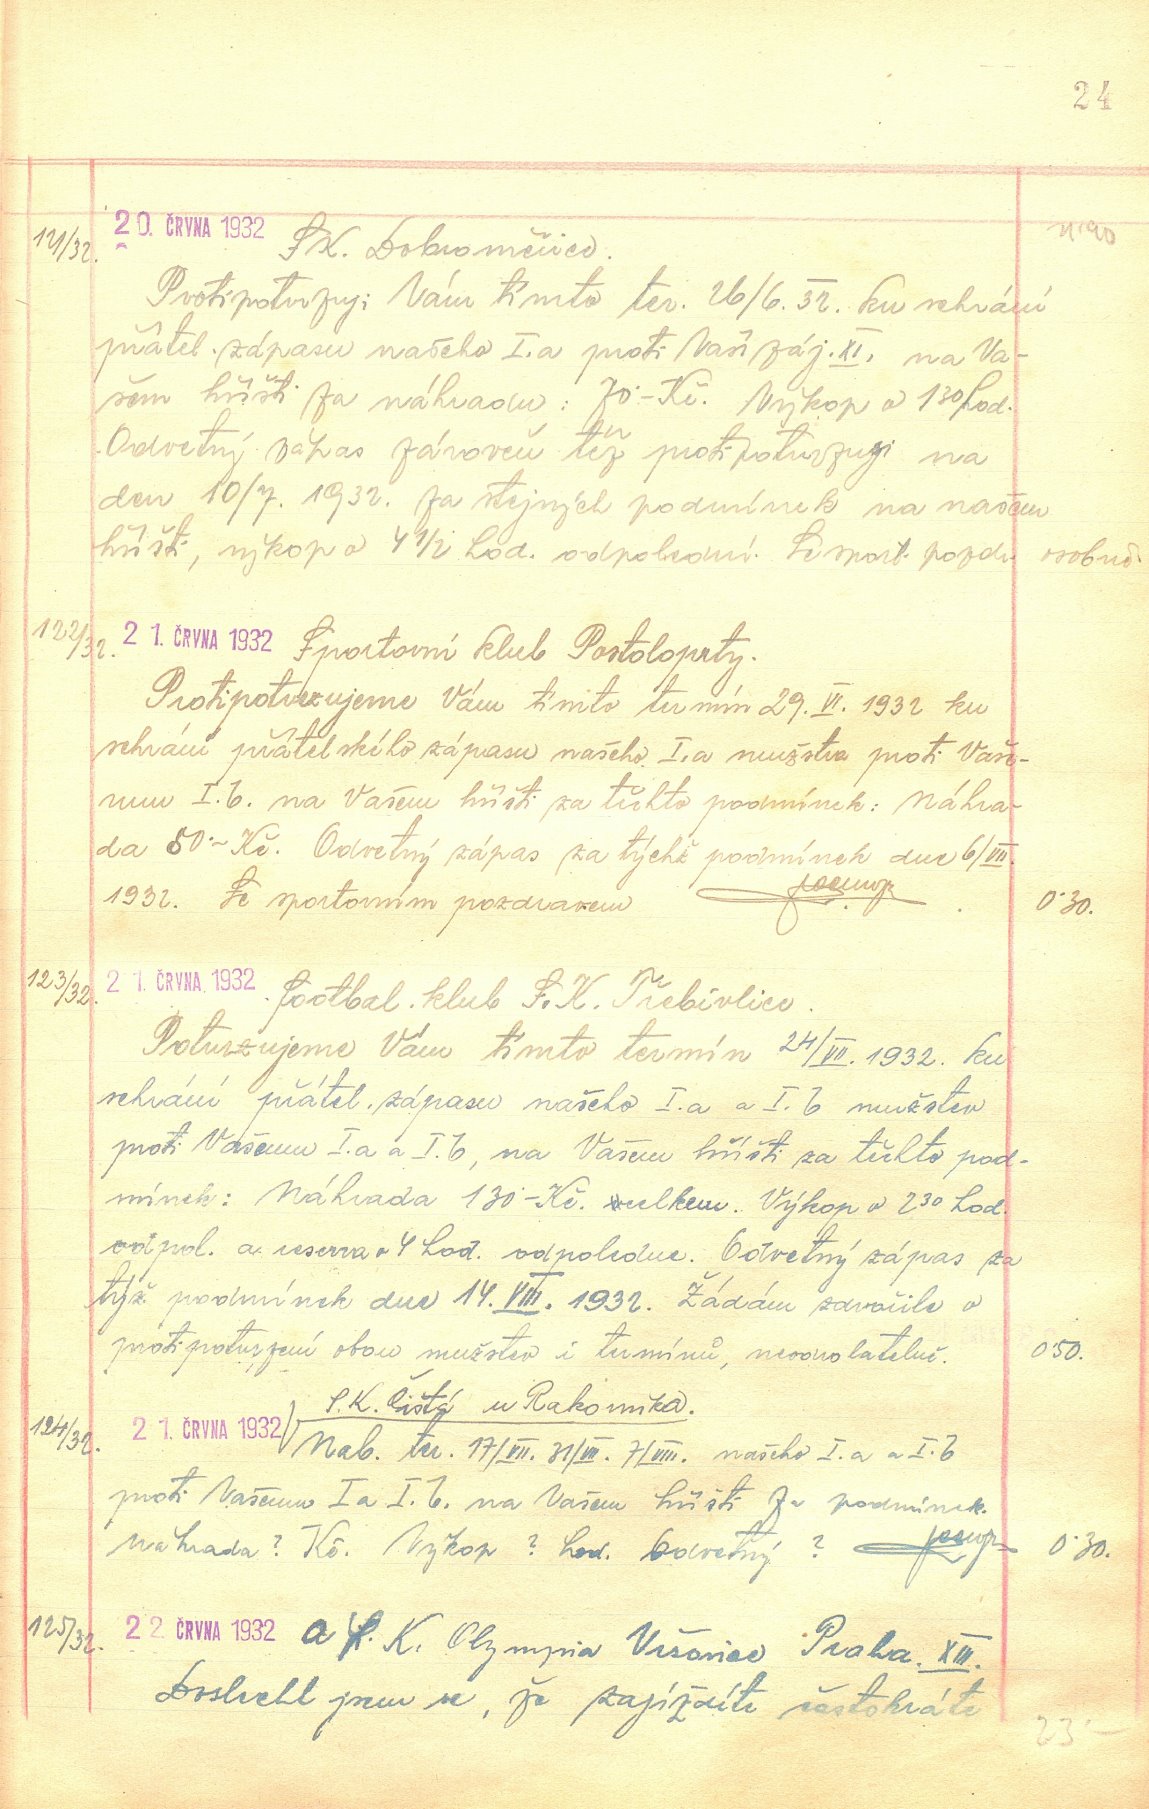 24
121/32. 20. ČRVNA 1932 S.K. Dobroměřice.
Protipotvrzuji Vám tímto ter. 26/6. 32. ku sehrání
přátel. zápasu našeho I.a proti Vaší záj. XI. na Va-
šem hřišti za náhradu: 70·– Kč. Výkop o 1 30 hod.
Odvetný zápas zároveň též protipotvrzuji na
den 10/7. 1932. za stejných podmínek na našem
hřišti, výkop o 4 1/2 hod. odpolední. Se sport. pozdr. osobně.
122/32. 21. ČRVNA 1932 Sportovní klub Postoloprty.
Protipotvrzujeme Vám tímto termín 29. VI. 1932 ku
sehrání přátelského zápasu našeho I.a mužstva proti Vaše-
mu I.b. na Vašem hřišti za těchto podmínek: Náhra-
da 50·– Kč. Odvetný zápas za týchž podmínek dne 6/VII.
1932. Se sportovním pozdravem 0·30.
123/32. 21. ČRVNA 1932. Footbal. klub S.K. Třebívlice.
Potvrzujeme Vám tímto termín 24/VII. 1932. ku
sehrání přátel. zápasu našeho I.a a I.b mužstev
proti Vašemu I.a a I.b, na Vašem hřišti za těchto pod-
mínek: Náhrada 130·– Kč. celkem. Výkop o 2 30 hod.
odpol. a reserva o 4 hod. odpoledne. Odvetný zápas za
týž podmínek dne 14. VIII. 1932. Žádám zdvořile o
protipotvrzení obou mužstev i termínů, neodvolatelně. 0·50.
S.K. Čistá u Rakovníka.
124/32. 21. ČRVNA 1932 Nab. ter. 17/VII. 31/VII. 7/VIII. našeho I.a a I.b
proti Vašemu I a I.b. na Vašem hřišti za podmínek.
Náhrada? Kč. Výkop? hod. Odvetný? 0·30.
125/32. 22. ČRVNA 1932 a S.K. Olympia Vršovice Praha. XIII.
Doslechl jsem se, že zajíždíte častokráte
23·–